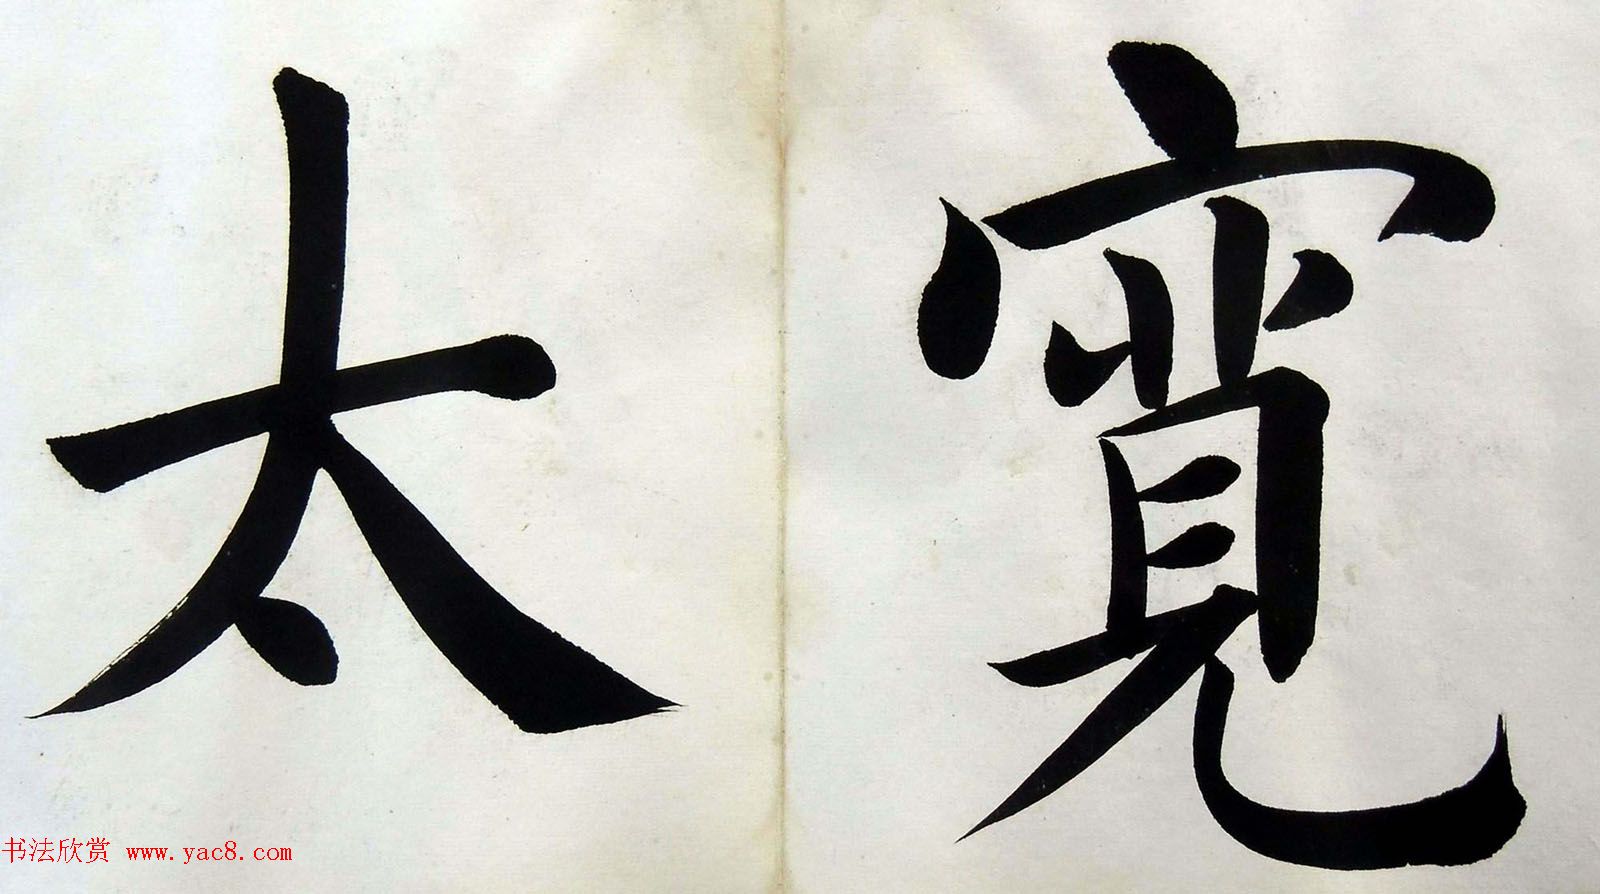 寛
太
书法欣赏 www.yac8.com